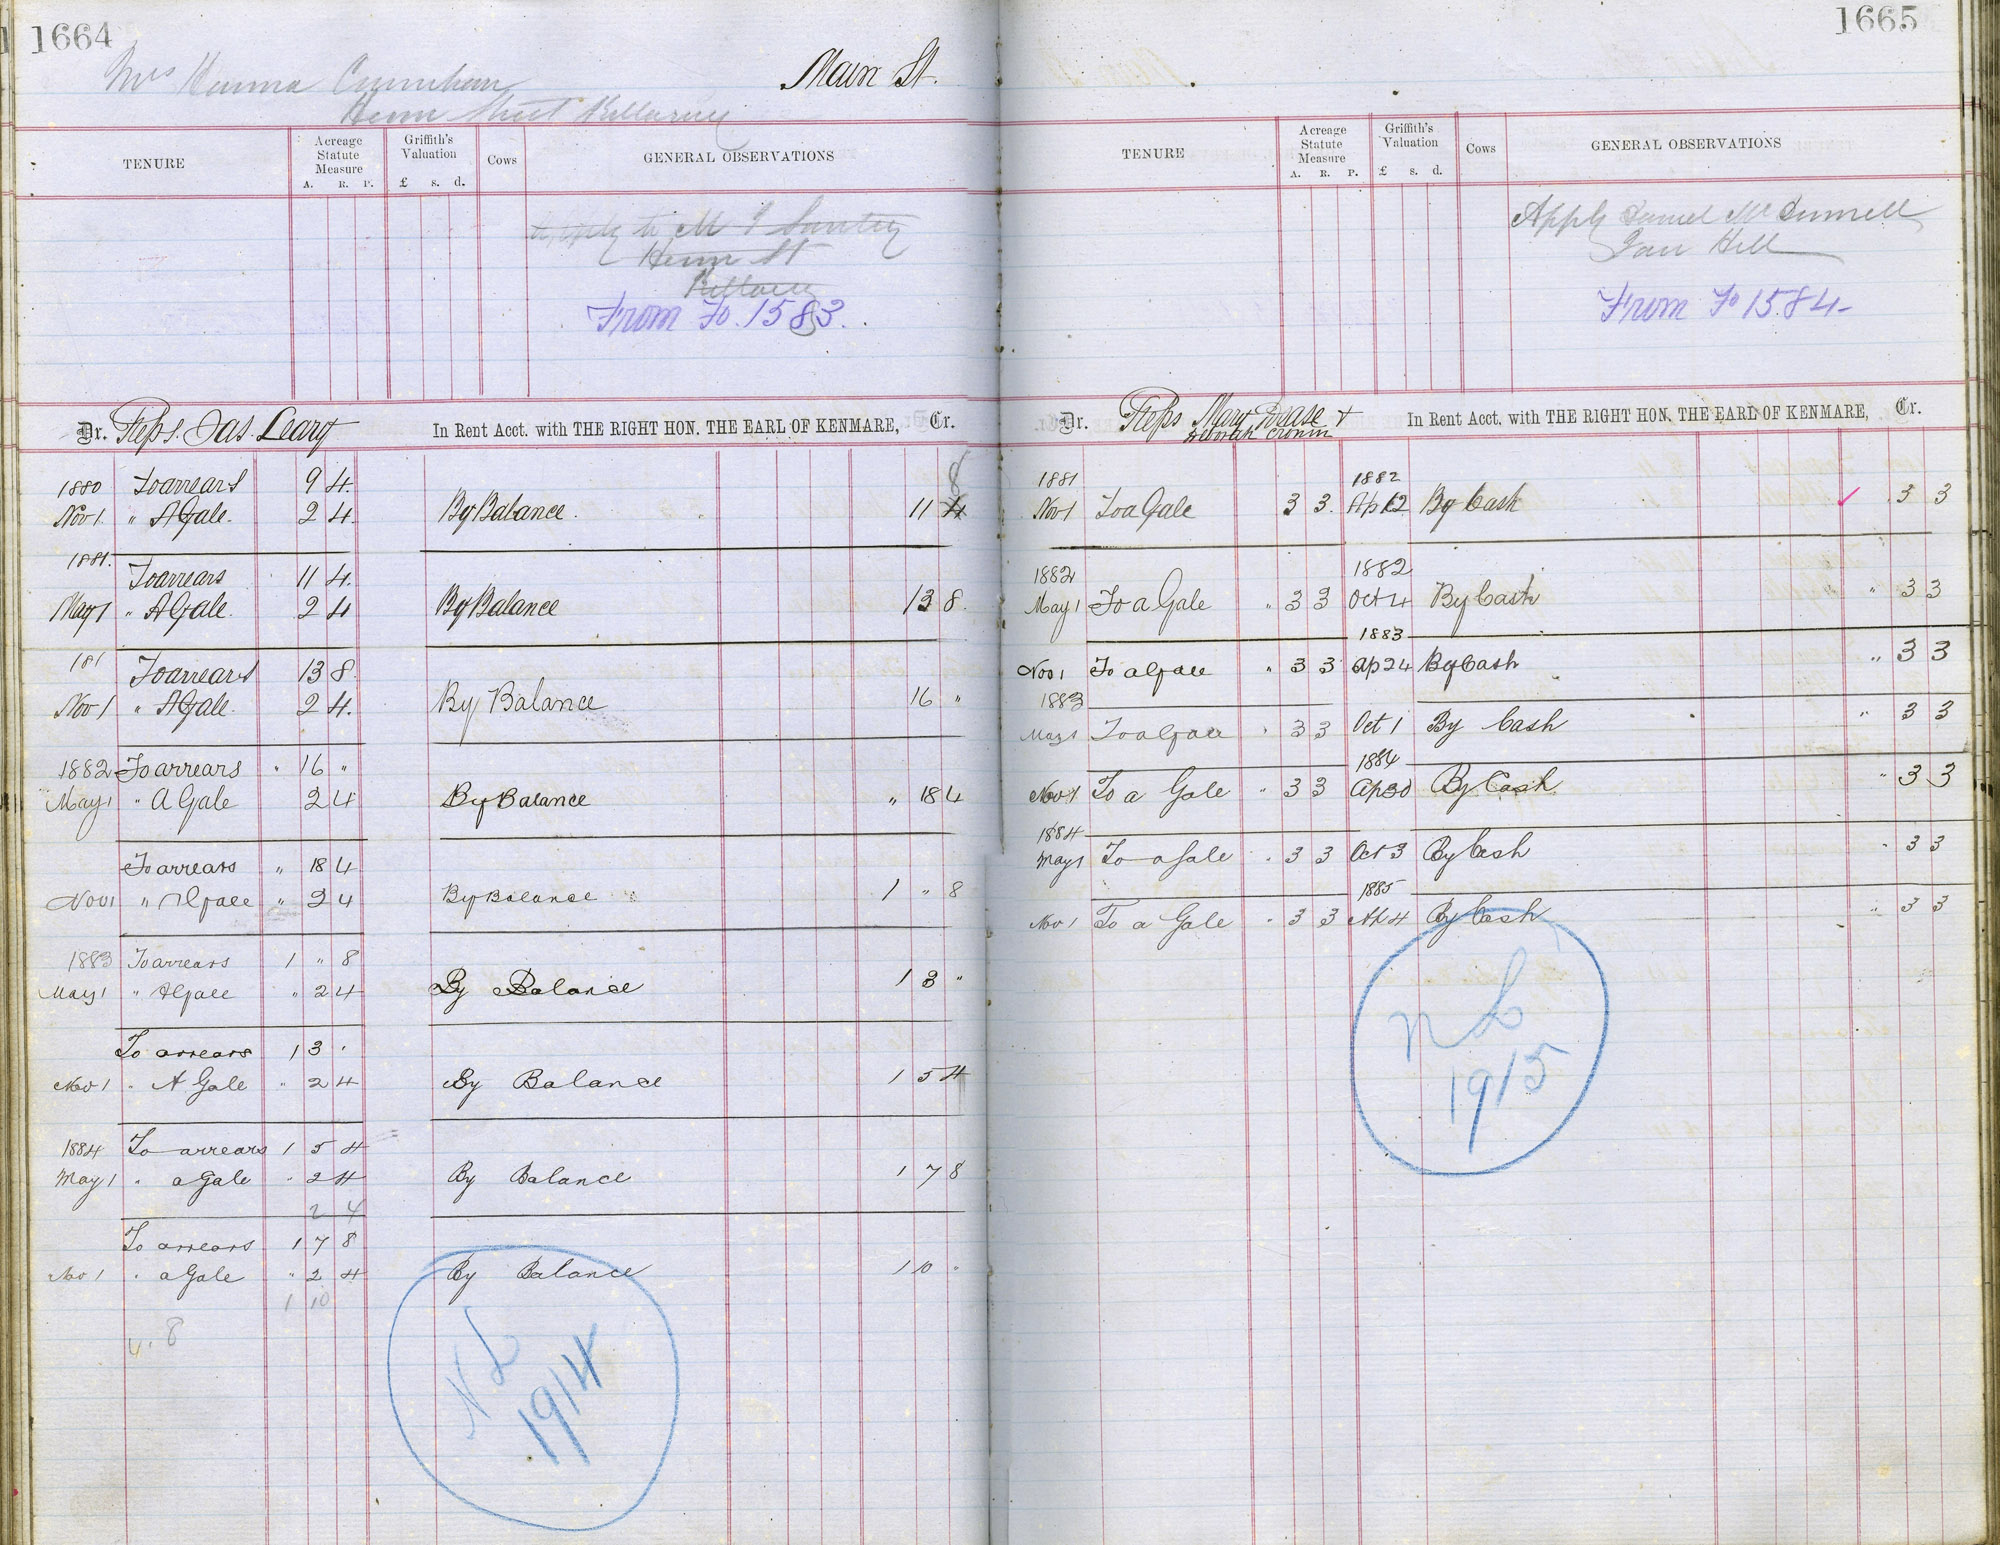 1664
Mrs Hanna
Henn Street Killarney
Main St.
TENURE
Acreage Statute Measure
A. R. P.
Griffith's Valuation
£ s. d.
Cows
GENERAL OBSERVATIONS
Apply to M
Henn St
From Fo. 1583.
Dr. Reps. Jas Leary In Rent Acct. with THE RIGHT HON. THE EARL OF KENMARE, Cr.
8
1880 To arrears 9 4
Nov 1 " A Gale. 2 4 By Balance. 11 4
1881.
To arrears 11 4
May 1 " A Gale. 2 4 By Balance 13 8.
181 To arrears 13 8
Nov 1 " A Gale. 2 4. By Balance 16 "
1882 To arrears " 16 "
May 1 " A Gale 2 4 By Balance " 18 4
To arrears " 18 4
Nov 1 " A Gale " 2 4 By Balance 1 " 8
1883 To arrears 1 " 8
May 1 " A Gale " 2 4 By Balance 1 3 "
To arrears 1 3 "
Nov 1 " A Gale " 2 4 By Balance 1 5 4
1884 To arrears 1 5 4
May 1 " a Gale " 2 4 By Balance 1 7 8
2 4
To arrears 1 7 8
Nov 1 " a Gale " 2 4 By Balance 1 10 "
1 10
8
N L
1914
1665
TENURE
Acreage Statute Measure
A. R. P.
Griffith's Valuation
£ s. d.
Cows
GENERAL OBSERVATIONS
Apply Daniel
Hill
From Fo 1584
Dr. Reps Mary Doase + In Rent Acct. with THE RIGHT HON. THE EARL OF KENMARE, Cr.
Deborah Cronin
1881 1882
Nov 1 To a Gale 3 3. Ap 12 By Cash 3 3
1882 1882
May 1 To a Gale " 3 3 Oct 4 By Cash " 3 3
1883
Nov 1 To a Gale " 3 3 Ap 24 By Cash " 3 3
1883
May 1 To a Gale " 3 3 Oct 1 By Cash " 3 3
1884
Nov 1 To a Gale " 3 3 Ap 30 By Cash " 3 3
1884
May 1 To a Gale " 3 3 Oct 3 By Cash " 3 3
1885
Nov 1 To a Gale " 3 3 Ap 4 By Cash " 3 3
N L
1915